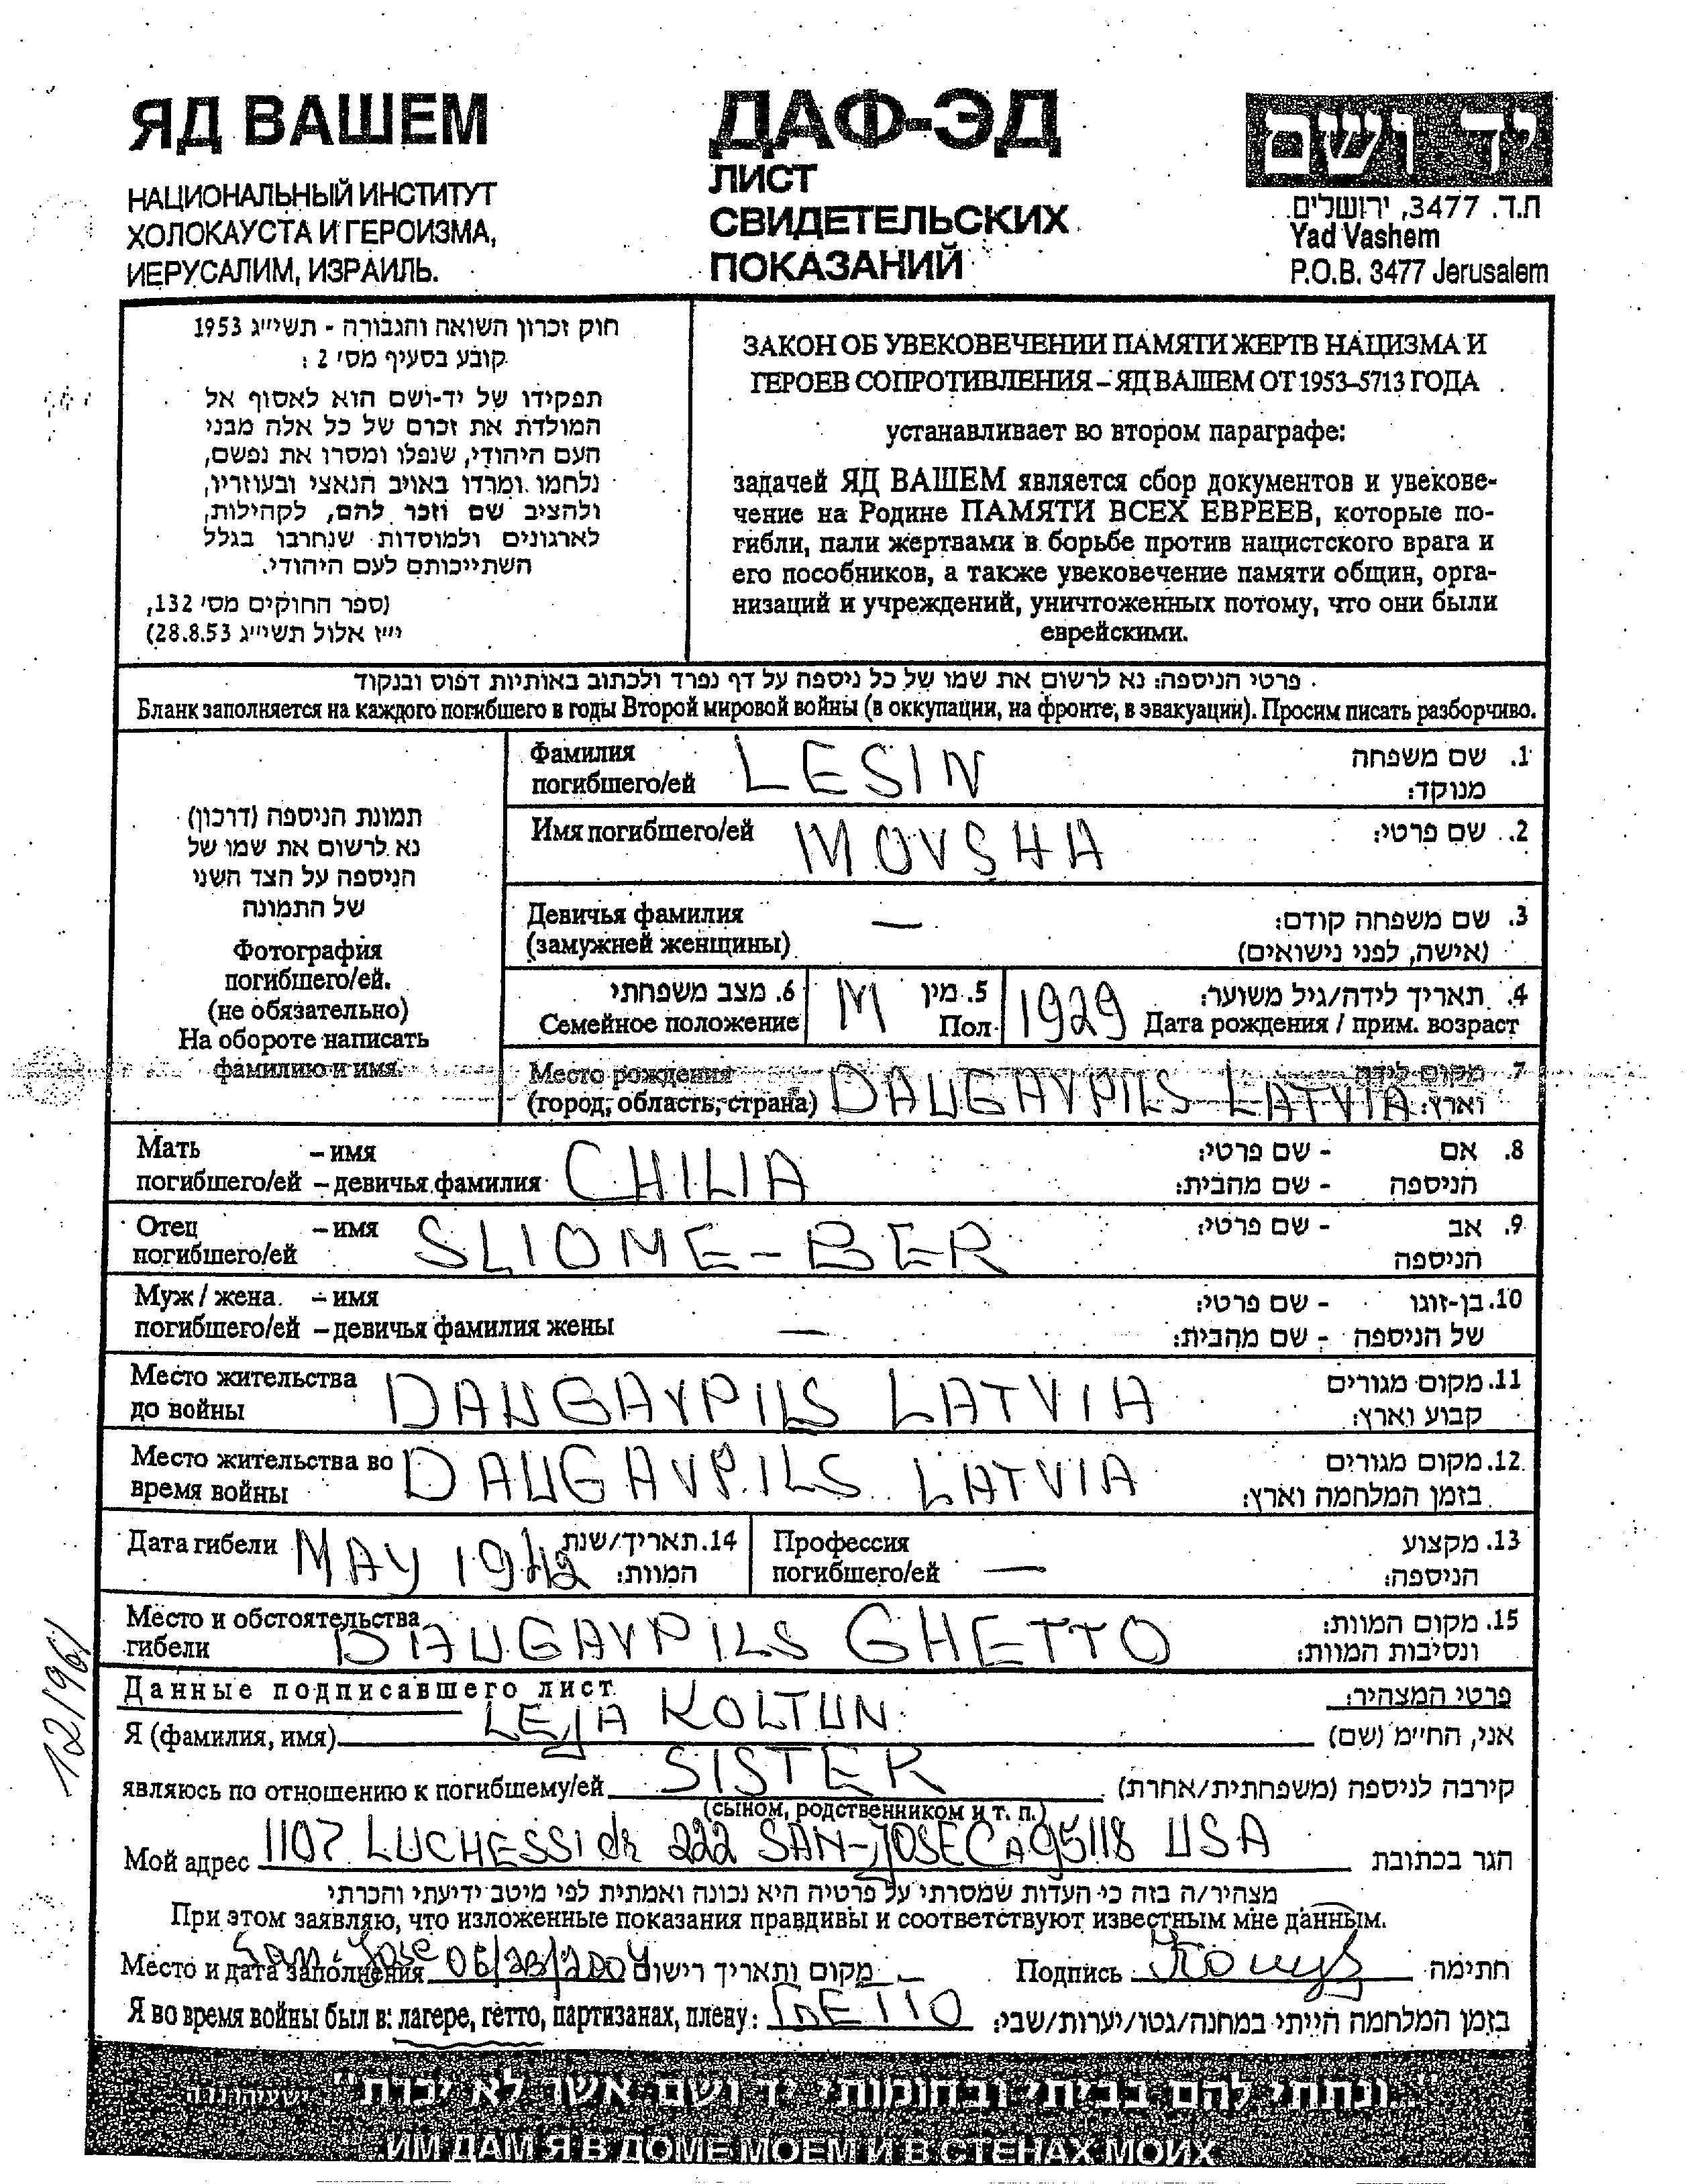 ЯД ВАШЕМ
НАЦИОНАЛЬНЫЙ ИНСТИТУТ
ХОЛОКАУСТА И ГЕРОИЗМА,
ИЕРУСАЛИМ, ИЗРАИЛЬ.
ДАФ-ЭД
ЛИСТ
СВИДЕТЕЛЬСКИХ
ПОКАЗАНИЙ
יד ושם
ת.ד. 3477, ירושלים
Yad Vashem
P.O.B. 3477 Jerusalem
חוק זכרון השואה והגבורה - תשי״ג 1953
קובע בסעיף מס׳ 2 :
תפקידו של יד-ושם הוא לאסוף אל
המולדת את זכרם של כל אלה מבני
העם היהודי, שנפלו ומסרו את נפשם,
נלחמו ומרדו באויב הנאצי ובעוזריו,
ולהציב שם וזכר להם, לקהילות,
לארגונים ולמוסדות שנחרבו בגלל
השתייכותם לעם היהודי.
(ספר החוקים מס׳ 132,
י״ז אלול תשי״ג 28.8.53)
ЗАКОН ОБ УВЕКОВЕЧЕНИИ ПАМЯТИ ЖЕРТВ НАЦИЗМА И
ГЕРОЕВ СОПРОТИВЛЕНИЯ – ЯД ВАШЕМ ОТ 1953–5713 ГОДА
устанавливает во втором параграфе:
задачей ЯД ВАШЕМ является сбор документов и увекове-
чение на Родине ПАМЯТИ ВСЕХ ЕВРЕЕВ, которые по-
гибли, пали жертвами в борьбе против нацистского врага и
его пособников, а также увековечение памяти общин, орга-
низаций и учреждений, уничтоженных потому, что они были
еврейскими.
פרטי הניספה: נא לרשום את שמו של כל ניספה על דף נפרד ולכתוב באותיות דפוס ובנקוד
Бланк заполняется на каждого погибшего в годы Второй мировой войны (в оккупации, на фронте, в эвакуации). Просим писать разборчиво.
תמונת הניספה (דרכון)
נא לרשום את שמו של
הניספה על הצד השני
של התמונה
Фотография
погибшего/ей.
(не обязательно)
На обороте написать
фамилию и имя.
Фамилия
погибшего/ей LESIN
1. שם משפחה
מנוקד:
Имя погибшего/ей MOVSHA 2. שם פרטי:
Девичья фамилия
(замужней женщины) —
3. שם משפחה קודם:
(אישה, לפני נישואים)
6. מצב משפחתי
Семейное положение
M 5. מין
Пол
1929 4. תאריך לידה/גיל משוער:
Дата рождения / прим. возраст
Место рождения
(город, область, страна) DAUGAVPILS LATVIA
7 מקום לידה
וארץ:
Мать – имя
погибшего/ей – девичья фамилия CHILIA
8. אם - שם פרטי:
הניספה - שם מהבית:
Отец – имя
погибшего/ей SLIOME-BER
9. אב - שם פרטי:
הניספה
Муж / жена – имя
погибшего/ей – девичья фамилия жены —
10. בן-זוגו - שם פרטי:
של הניספה - שם מהבית:
Место жительства
до войны DAUGAVPILS LATVIA
11. מקום מגורים
קבוע וארץ:
Место жительства во
время войны DAUGAVPILS LATVIA
12. מקום מגורים
בזמן המלחמה וארץ:
Дата гибели MAY 1942 14. תאריך/שנת
המוות:
Профессия
погибшего/ей —
13. מקצוע
הניספה:
Место и обстоятельства
гибели DAUGAVPILS GHETTO
15. מקום המוות:
ונסיבות המוות:
Данные подписавшего лист פרטי המצהיר:
Я (фамилия, имя) LEJA KOLTUN אני, החי״מ (שם)
являюсь по отношению к погибшему/ей SISTER קירבה לניספה (משפחתית/אחרת)
(сыном, родственником и т. п.)
Мой адрес 1107 LUCHESSI dr 222 SAN-JOSE CA 95118 USA הגר בכתובת
מצהיר/ה בזה כי העדות שמסרתי על פרטיה היא נכונה ואמתית לפי מיטב ידיעתי והכרתי
При этом заявляю, что изложенные показания правдивы и соответствуют известным мне данным.
Место и дата заполнения San-Jose 06/23/2004 מקום ותאריך רישום Подпись חתימה
Я во время войны был в: лагере, гетто, партизанах, плену: GHETTO בזמן המלחמה הייתי במחנה/גטו/יערות/שבי:
12196/
״...ונתתי להם בביתי ובחומותי יד ושם אשר לא יכרת״ ישעיהו נו ה
ИМ ДАМ Я В ДОМЕ МОЕМ И В СТЕНАХ МОИХ